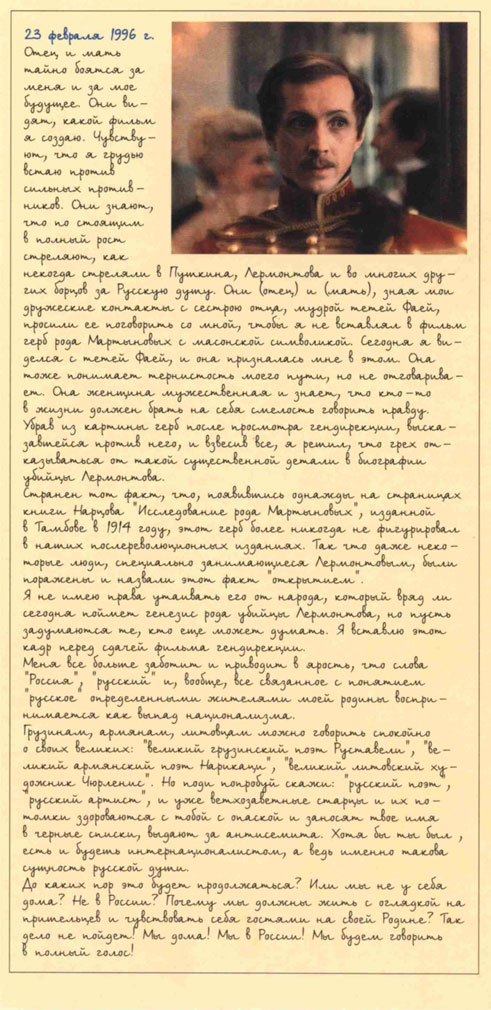 23 февраля 1996 г.
Отец и мать
тайно боятся за
меня и за мое
будущее. Они ви-
дят, какой фильм
я создаю. Чувству-
ют, что я грудью
встаю против
сильных против-
ников. Они знают,
что по стоящим
в полный рост
стреляют, как
некогда стреляли в Пушкина, Лермонтова и во многих дру-
гих борцов за Русскую душу. Они (отец) и (мать), зная мои
дружеские контакты с сестрою отца, мудрой тетей Фаей,
просили ее поговорить со мной, чтобы я не вставлял в фильм
герб рода Мартыновых с масонской символикой. Сегодня я ви-
делся с тетей Фаей, и она призналась мне в этом. Она
тоже понимает тернистость моего пути, но не отговарива-
ет. Она женщина мужественная и знает, что кто-то
в жизни должен брать на себя смелость говорить правду.
Убрав из картины герб после просмотра гендирекции, выска-
завшейся против него, и взвесив все, я решил, что грех от-
казываться от такой существенной детали в биографии
убийцы Лермонтова.
Странен тот факт, что, появившись однажды на страницах
книги Нарцова "Исследование рода Мартыновых", изданной
в Тамбове в 1914 году, этот герб более никогда не фигурировал
в наших послереволюционных изданиях. Так что даже неко-
торые люди, специально занимающиеся Лермонтовым, были
поражены и назвали этот факт "открытием".
Я не имею права утаивать его от народа, который вряд ли
сегодня поймет генезис рода убийцы Лермонтова, но пусть
задумаются те, кто еще может думать. Я вставлю этот
кадр перед сдачей фильма гендирекции.
Меня все больше заботит и приводит в ярость, что слова
"Россия", "русский" и, вообще, все связанное с понятием
"русское" определенными жителями моей родины воспри-
нимается как выпад национализма.
Грузинам, армянам, литовцам можно говорить спокойно
о своих великих: "великий грузинский поэт Руставели", "ве-
ликий армянский поэт Нарикаци", "великий литовский ху-
дожник Чюрленис". Но поди попробуй скажи: "русский поэт",
"русский артист", и уже ветхозаветные старцы и их по-
томки здороваются с тобой с опаской и заносят твое имя
в черные списки, выдают за антисемита. Хотя бы ты был,
есть и будешь интернационалистом, а ведь именно такова
сущность русской души.
До каких пор это будет продолжаться? Или мы не у себя
дома? Не в России? Почему мы должны жить с оглядкой на
пришельцев и чувствовать себя гостями на своей Родине? Так
дело не пойдет! Мы дома! Мы в России! Мы будем говорить
в полный голос!